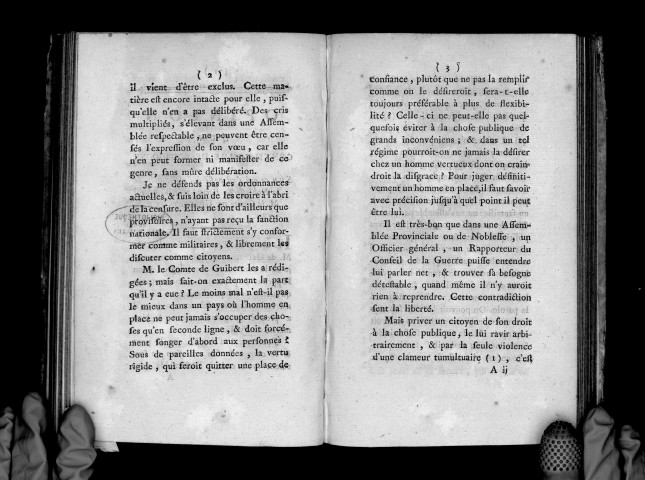 ( 2 )
il vient d'être exclus. Cette ma-
tière est encore intacte pour elle, puis-
qu'elle n'en a pas délibéré. Des cris
multipliés, s'élevant dans une Assem-
blée respectable, ne peuvent être cen-
sés l'expression de son vœu, car elle
n'en peut former ni manifester de ce
genre, sans mûre délibération.
Je ne défends pas les ordonnances
actuelles, & suis loin de les croire à l'abri
de la censure. Elles ne sont d'ailleurs que
provisoires, n'ayant pas reçu la sanction
nationale. Il faut strictement s'y confor-
mer comme militaires, & librement les
discuter comme citoyens.
M. le Comte de Guibert les a rédi-
gées; mais sait-on exactement la part
qu'il y a eue ? Le moins mal n'est-il pas
le mieux dans un pays où l'homme en
place ne peut jamais s'occuper des cho-
ses qu'en seconde ligne, & doit forcé-
ment songer d'abord aux personnes ?
Sous de pareilles données, la vertu
rigide, qui feroit quitter une place de
( 3 )
confiance, plutôt que ne pas la remplir
comme on le désireroit, sera-t-elle
toujours préférable à plus de flexibi-
lité ? Celle-ci ne peut-elle pas quel-
quefois éviter à la chose publique de
grands inconvéniens; & dans un tel
régime pourroit-on ne jamais la désirer
chez un homme vertueux dont on crain-
droit la disgrace ? Pour juger définiti-
vement un homme en place, il faut savoir
avec précision jusqu'à quel point il peut
être lui.
Il est très-bon que dans une Assem-
blée Provinciale ou de Noblesse, un
Officier général, un Rapporteur du
Conseil de la Guerre puisse entendre
lui parler net, & trouver sa besogne
détestable, quand même il n'y auroit
rien à reprendre. Cette contradiction
sent la liberté.
Mais priver un citoyen de son droit
à la chose publique, le lui ravir arbi-
trairement, & par la seule violence
d'une clameur tumultuaire (1), c'est
A ij